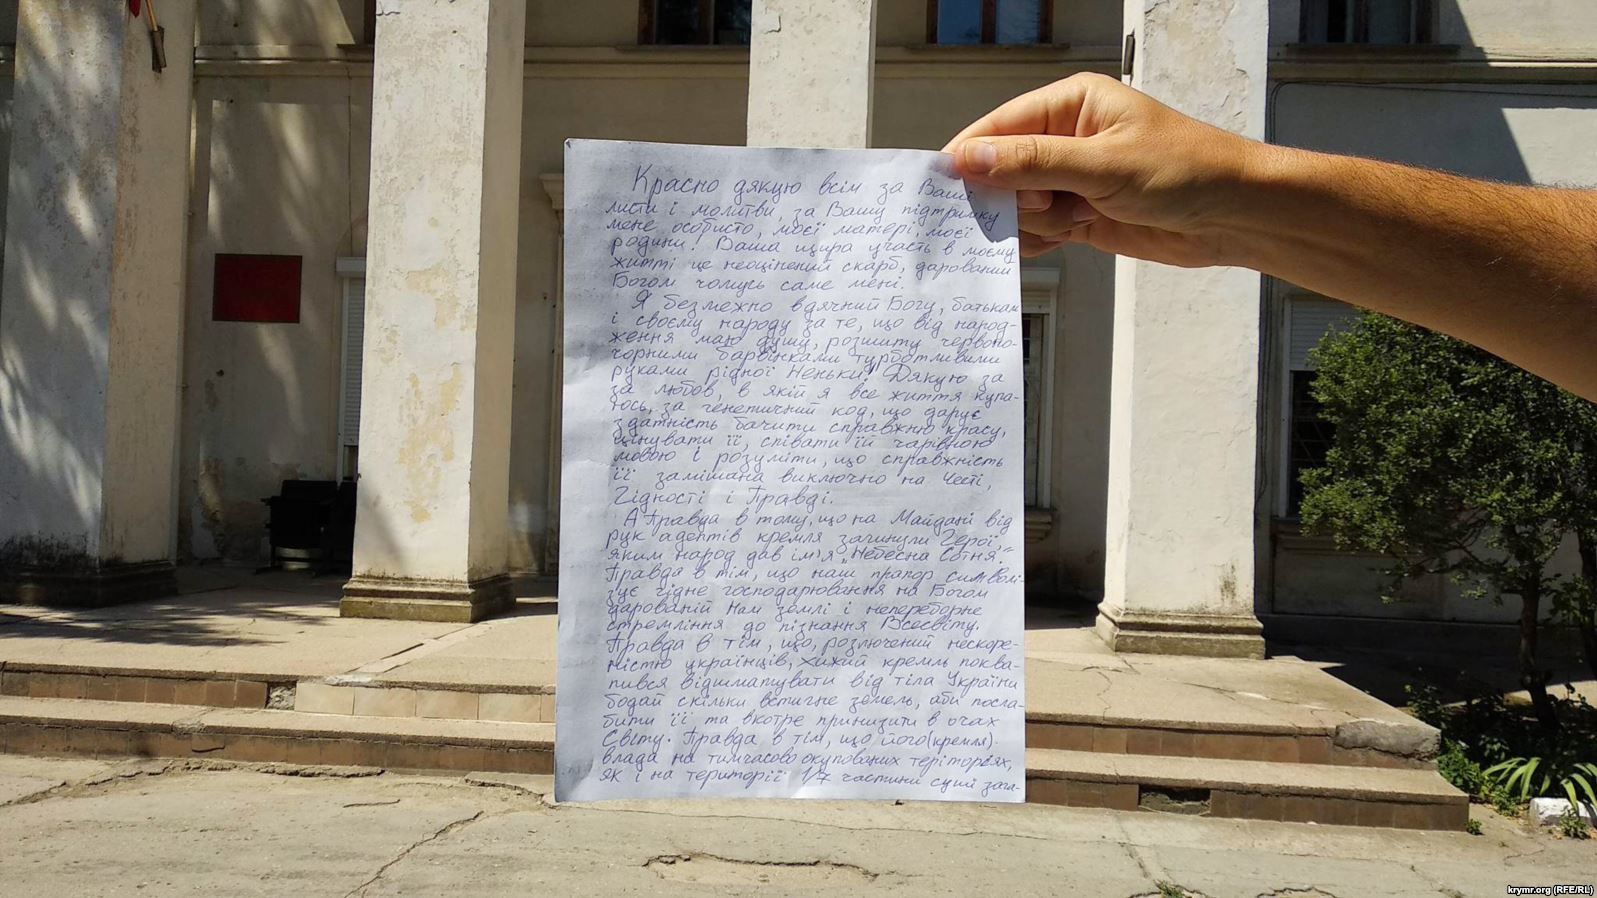 Красно дякую всім за Ваші
листи і молитви, за Вашу підтримку
мене особисто, моєї матері, моєї
родини! Ваша щира участь в моєму
житті це неоцінений скарб, дарований
Богом чомусь саме мені.
Я безмежно вдячний Богу, батькам
і своєму народу за те, що від народ-
ження маю душу, розшиту червоно-
чорними барвінками турботливими
руками рідної Неньки! Дякую за
за любов, в якій я все життя купа-
юсь, за генетичний код, що дарує
здатність бачити справжню красу,
цінувати її, співати їй чарівною
мовою і розуміти, що справжність
її замішана виключно на Честі,
Гідності і Правді.
А Правда в тому, що на Майдані від
рук адептів кремля загинули Герої,
яким народ дав ім'я „Небесна Сотня"
Правда в тім, що наш прапор символі-
зує гідне господарювання на Богом
дарованій Нам землі і непереборне
стремління до пізнання Всесвіту.
Правда в тім, що, розлючений нескоре-
ністю українців, хижий кремль поква-
пився відшматувати від тіла України
бодай скільки встигне земель, аби посла-
бити її та вкотре принизити в очах
Світу. Правда в тім, що його(кремля)
влада на тимчасово окупованих територіях,
як і на території 1/7 частини суші зага-
krymr.org (RFE/RL)